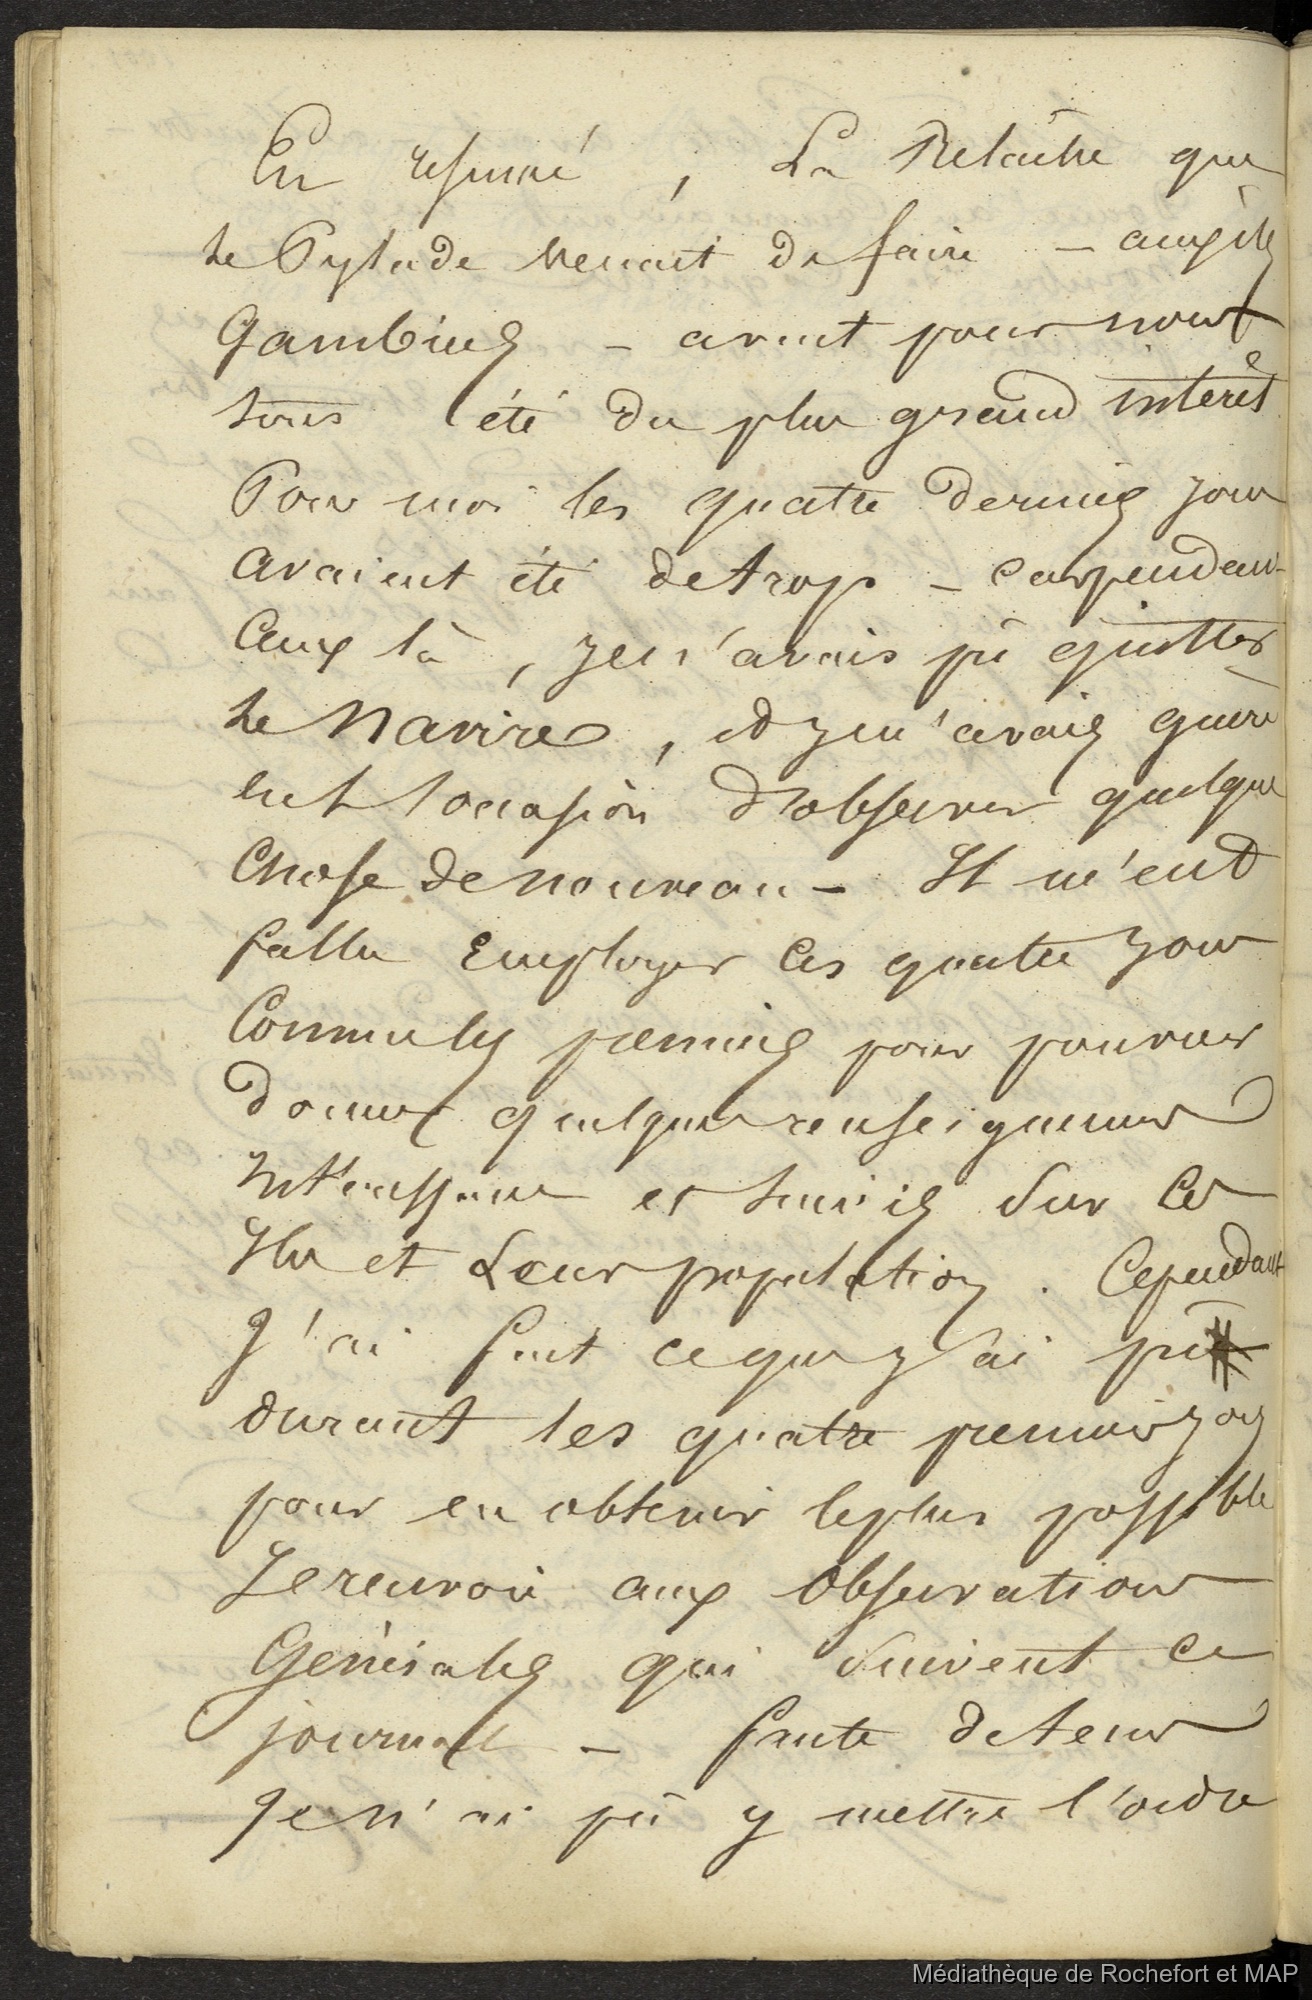 En resumé, La Relache que
le Pylade venait de faire - aux iles
Gambiers - avait pour nous
tous été du plus grand intérêt
Pour moi les quatre derniers jours
avaient été de trop - car pendant
ceux là, je n'avais pû quitter
le Navire, et je n'avais guère
eut l'occasion d'observer quelque
chose de nouveau - Il m'eut
fallu Employer ces quatre jours
comme les premiers pour pouvoir
donner quelques renseignemens
Intéressans et suivis sur ces
Iles et Leur population. Cependant
J'ai fait ce que j'ai pû
durant les quatre premiers jours
pour en obtenir le plus possible
Je renvoie aux Observations
Générales qui suivent ce
journal - faute de tems
Je n'ai pû y mettre l'ordre
Médiathèque de Rochefort et MAP